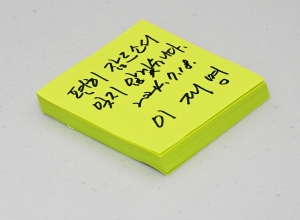 편히 잠드소서
잊지 않겠습니다.
2024.7.18.
이 재 명